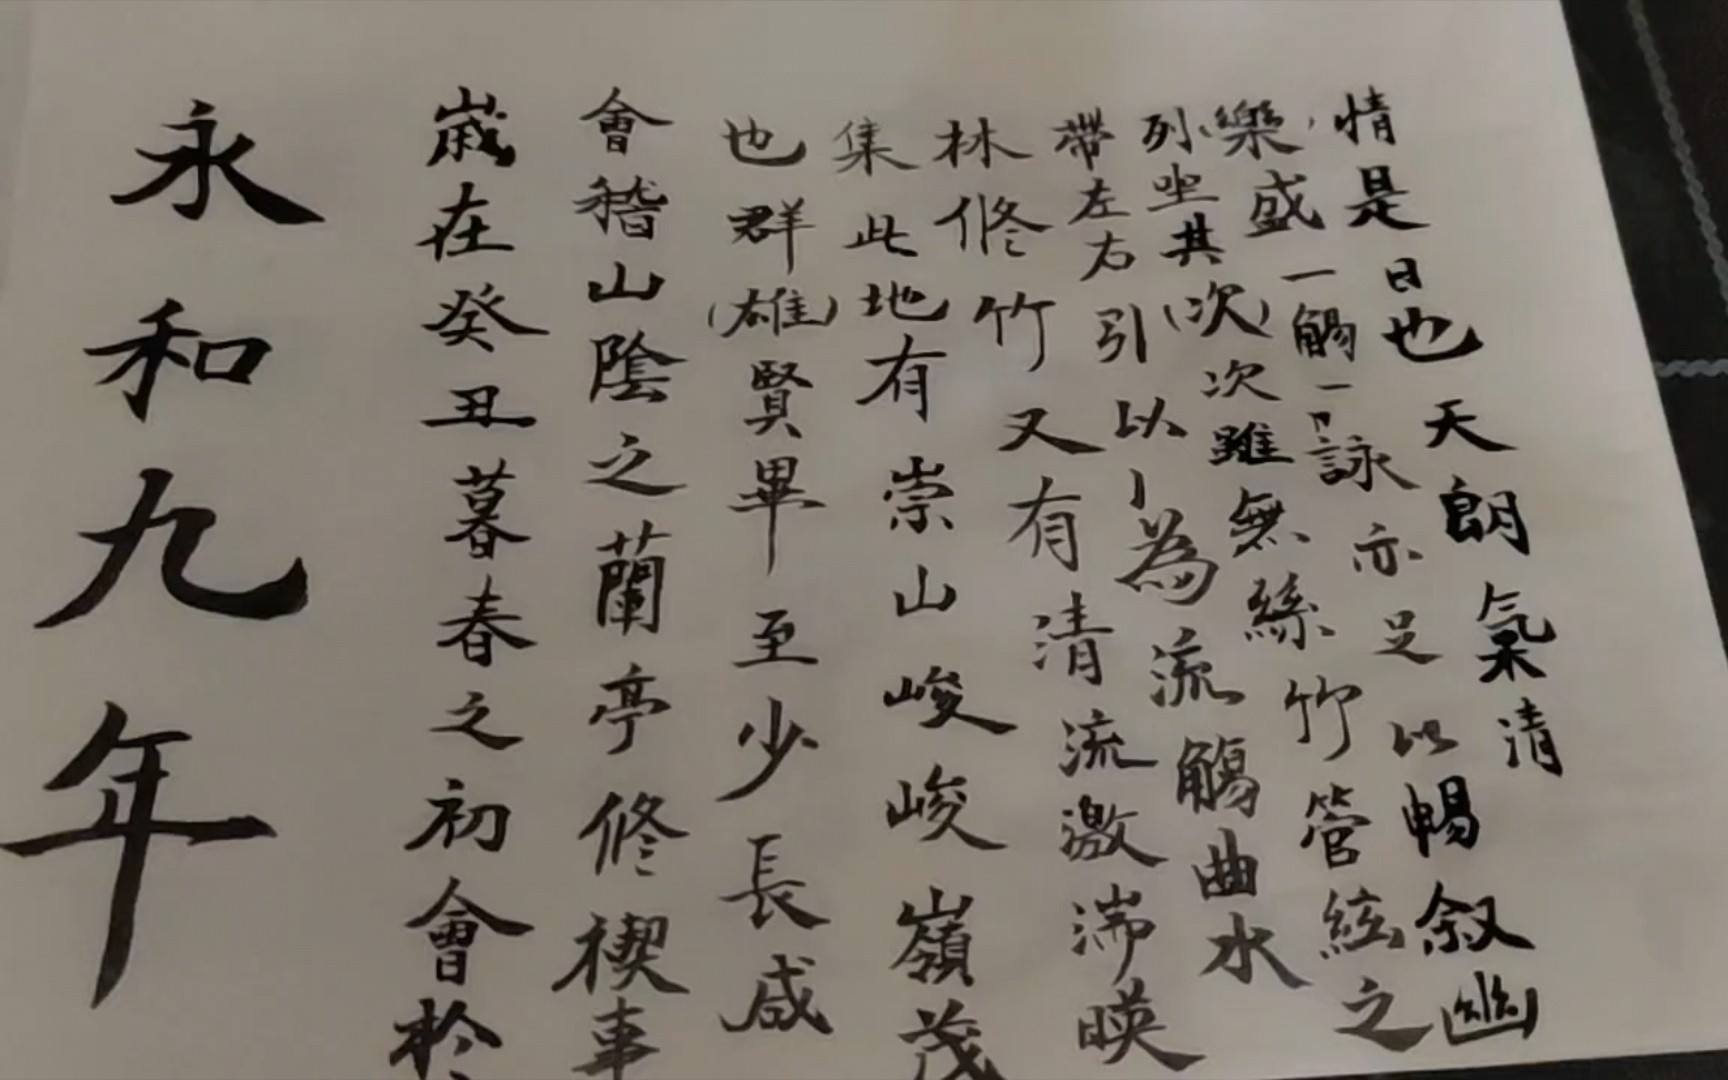 永和九年
歲在癸丑暮春之初會於
會稽山陰之蘭亭修禊事
也群(雄)賢畢至少長咸
集此地有崇山峻峻嶺茂
林修竹又有清流激湍暎
帶左右引以為流觴曲水
列坐其(次)次雖無絲竹管絃之
樂盛一觴一詠亦足以暢叙幽
情是日也天朗氣清